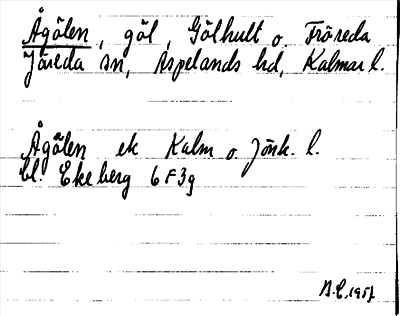 Ågölen, göl, Gölhult o. Fröreda
Järeda sn, Aspelands hd, Kalmar l.
Ågölen ek Kalm o. Jönk. l.
bl. Ekeberg 6F3g
1957